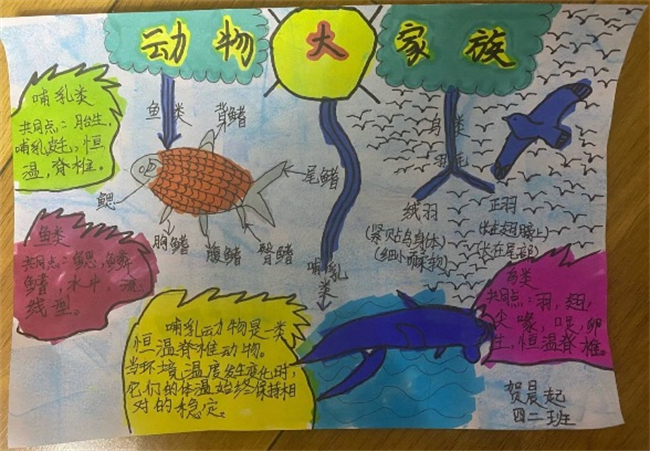 动物大家族
哺乳类
共同点：胎生，
哺乳发生，恒
温，脊椎。
鱼类
背鳍
尾鳍
鳃
胸鳍
腹鳍
臀鳍
鸟类
羽毛
绒羽
(紧贴鸟身体)
正羽
(长在翅膀上
长在尾部)
鱼类
共同点：鳃，鳞，
鳍，水中，流
线型。
哺乳
类
鸟类
共同点：羽，翅，
尖喙，足，卵
生，恒温脊椎。
哺乳动物是一类
恒温脊椎动物。
当环境温度发生变化时，
它们的体温始终保持相
对的稳定。
贺晨起
四二班